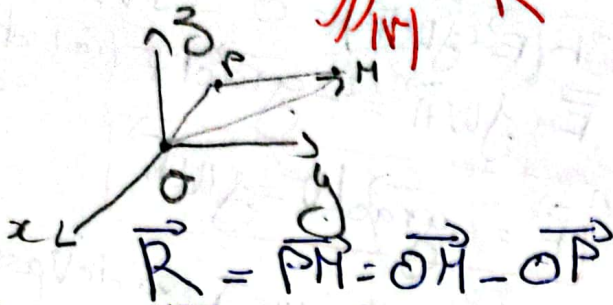 ∫∫ |r| R
z
P M
O
y
x
\vec{R} = \vec{PM} = \vec{OM} - \vec{OP}